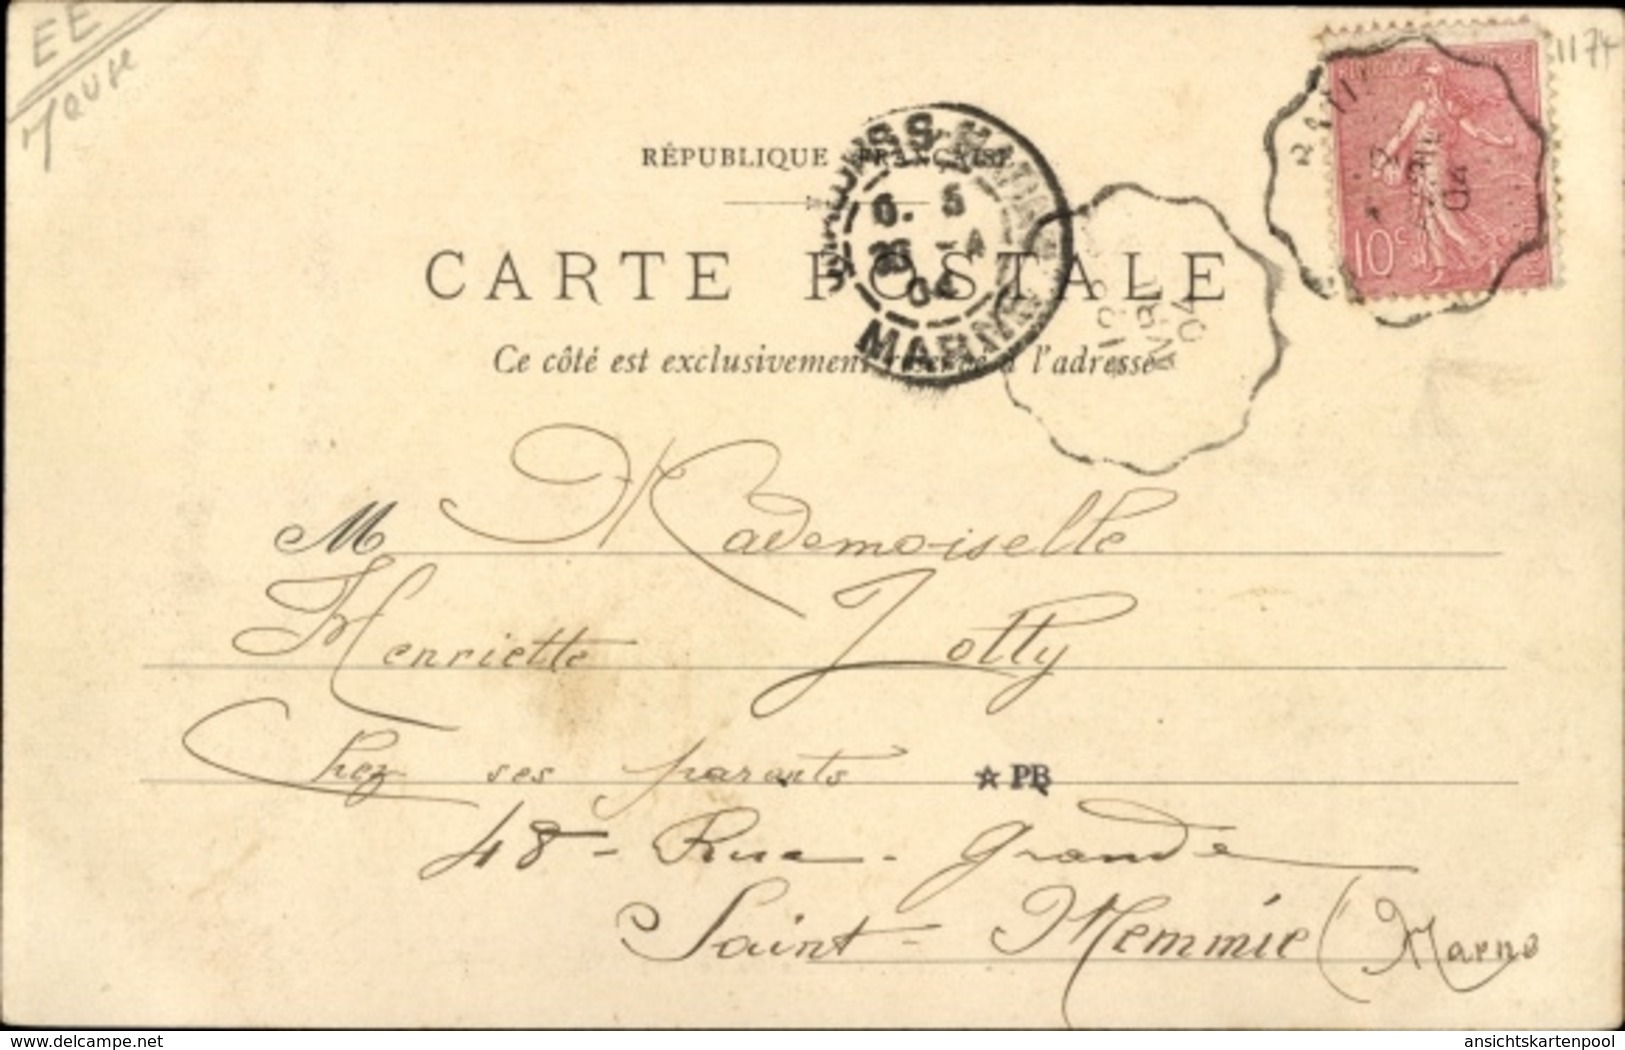 EE
Meuse
1174
RÉPUBLIQUE FRANÇAISE
CARTE POSTALE
Ce côté est exclusivement réservé à l'adresse
MARNE
04
AVRIL
04
04
10c
M Mademoiselle
Henriette Jolly
Chez ses parents
☆ PB
48 - Rue - Grande
Saint - Memmie (Marne
delcampe.net
ansichtskartenpool